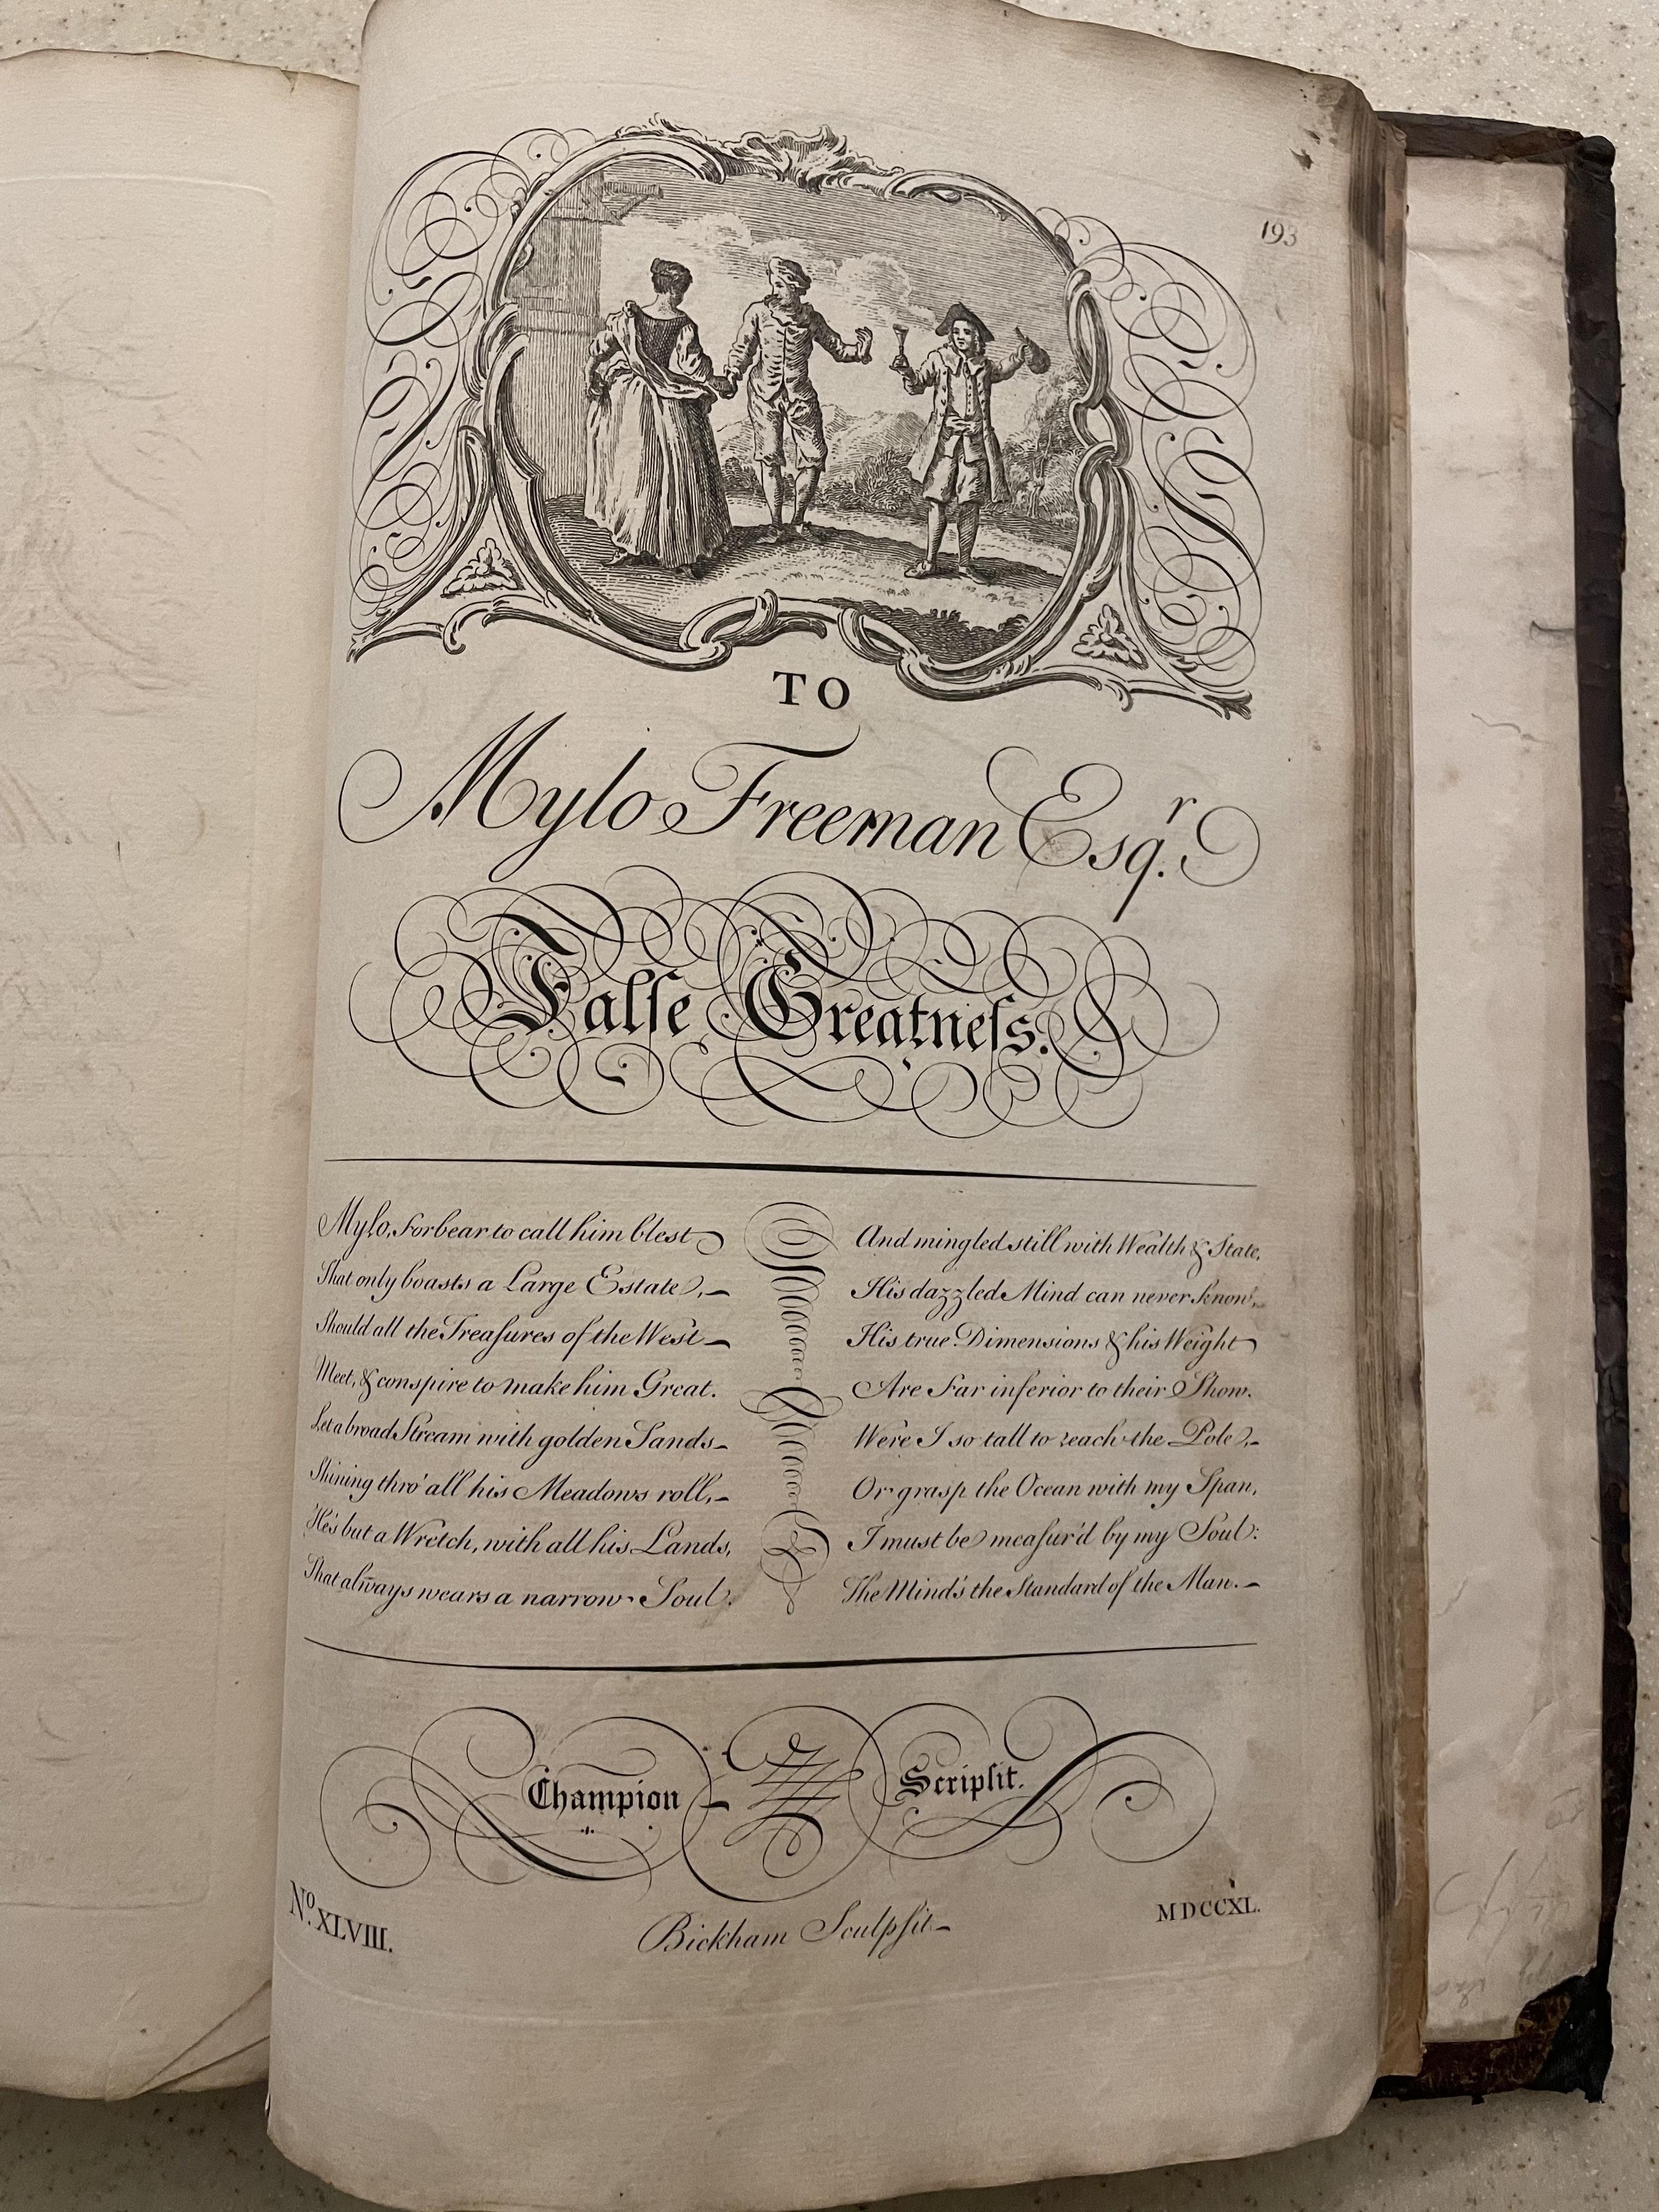 193
TO
Mylo Freeman Esqr.
Falſe Greatneſs.
Mylo, forbear to call him blest
That only boasts a Large Estate,
Should all the Treaſures of the West
Meet, & conspire to make him Great.
Let a broad Stream with golden Sands
Shining thro' all his Meadows roll,
He's but a Wretch, with all his Lands,
That always wears a narrow Soul.
And mingled still with Wealth & State,
His dazzled Mind can never know,
His true Dimensions & his Weight
Are far inferior to their Show.
Were I so tall to reach the Pole,
Or grasp the Ocean with my Span,
I must be meaſur'd by my Soul:
The Mind's the Standard of the Man.
Champion Scripſit.
No. XLVIII. Bickham Sculpſit MDCCXL.